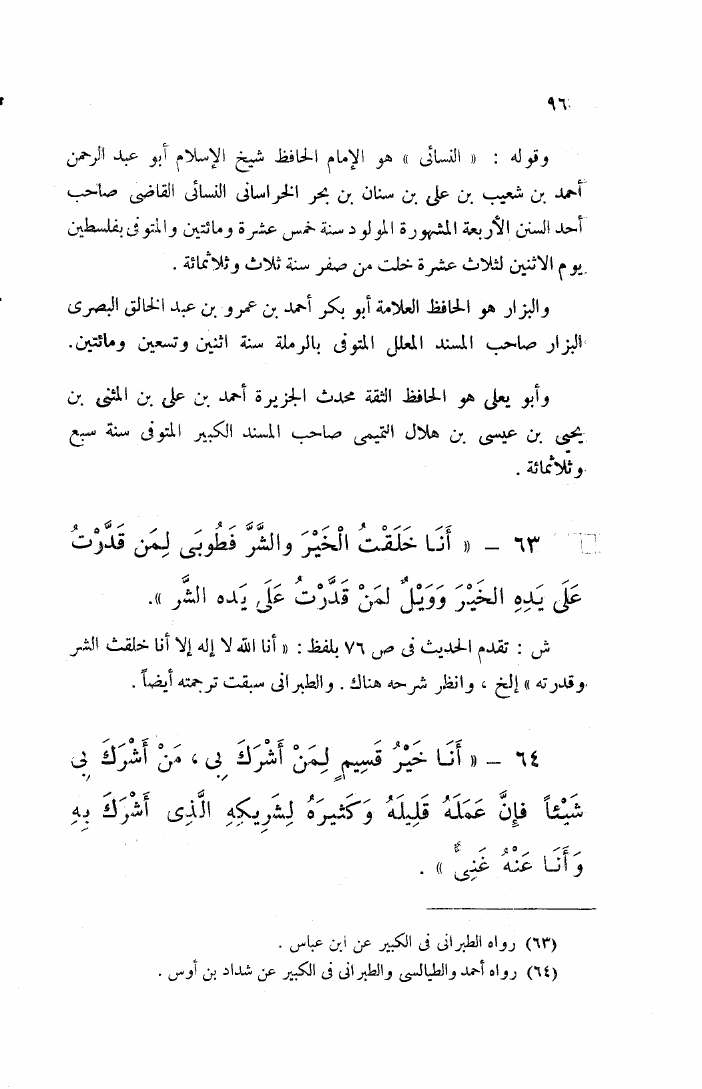 ٩٦
وقوله : « النسائى » هو الإمام الحافظ شيخ الإسلام أبو عبد الرحمن
أحمد بن شعيب بن على بن سنان بن بحر الخراسانى النسائى القاضى صاحب
أحد السنن الأربعة المشهورة المولود سنة خمس عشرة ومائتين والمتوفى بفلسطين
يوم الاثنين لثلاث عشرة خلت من صفر سنة ثلاث وثلاثمائة .
والبزار هو الحافظ العلامة أبو بكر أحمد بن عمرو بن عبد الخالق البصرى
البزار صاحب المسند المعلل المتوفى بالرملة سنة اثنين وتسعين ومائتين.
وأبو يعلى هو الحافظ الثقة محدث الجزيرة أحمد بن على بن المثنى بن
يحيى بن عيسى بن هلال التميمى صاحب المسند الكبير المتوفى سنة سبع
وثلاثمائة .
٦٣ – « أَنَا خَلَقْتُ الْخَيْرَ والشَّرَّ فَطُوبَى لِمَن قَدَّرْتُ
عَلَى يَدِهِ الخَيْرَ وَوَيْلٌ لمَنْ قَدَّرْتُ عَلَى يَده الشَّر ».
ش : تقدم الحديث فى ص ٧٦ بلفظ : « أنا الله لا إله إلا أنا خلقت الشر
وقدرته » إلخ ، وانظر شرحه هناك . والطبرانى سبقت ترجمته أيضاً .
٦٤ – « أَنَا خَيْرُ قَسِيمٍ لِمَنْ أَشْرَكَ بِى ، مَنْ أَشْرَكَ بِى
شَيْئاً فإِنَّ عَمَلَهُ قَلِيلَهُ وَكَثِيرَهُ لِشَرِيكِهِ الَّذِى أَشْرَكَ بِهِ
وَأَنَا عَنْهُ غَنِىٌّ » .
(٦٣) رواه الطبرانى فى الكبير عن ابن عباس .
(٦٤) رواه أحمد والطيالسى والطبرانى فى الكبير عن شداد بن أوس .